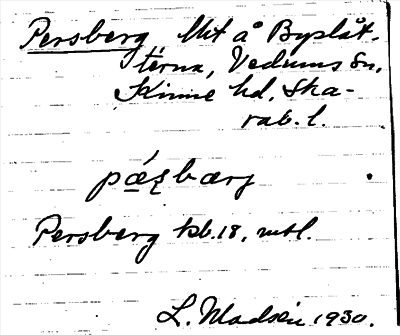 Persberg Utt å Byslät-
tèrna, Vedums sn,
Kinne hd. Ska-
rab. l.
pæ̀ʂbærj
Persberg tab. 18. mtl.
L. Madsén 1930.